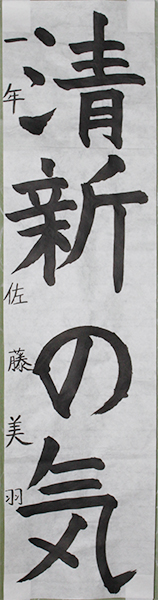 清新の気
一年佐藤美羽